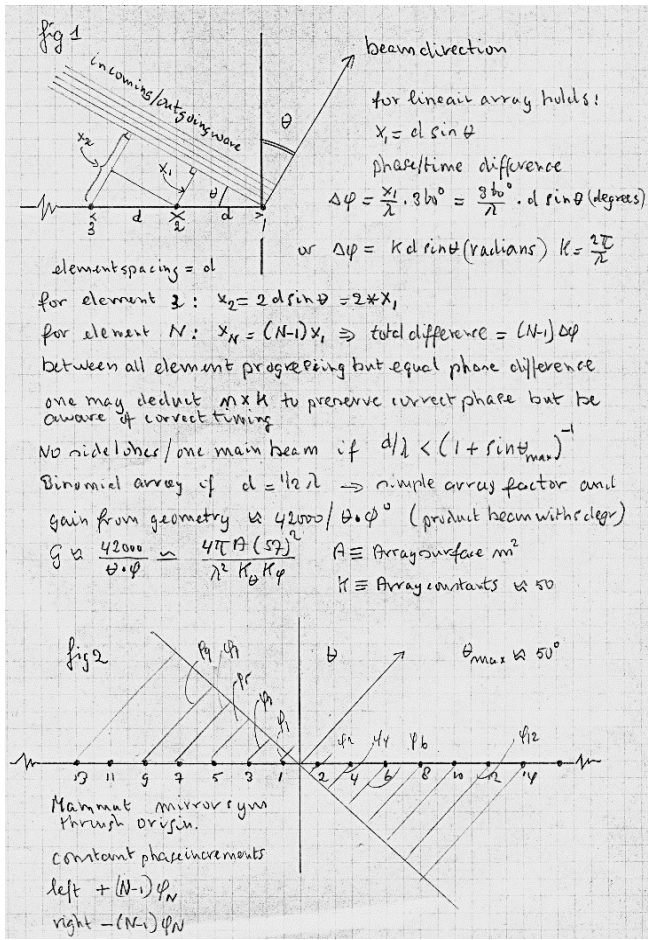 fig 1
beam direction
incoming/outgoing wave
θ
for lineair array holds:
x₁ = d sin θ
phase/time difference
Δφ = x₁/λ · 360° = 360°/λ · d sinθ (degrees)
x₂
x₁
θ
3 d 2 d 1
or Δφ = K d sinθ (radians) K = 2π/λ
elementspacing = d
for element 3: x₂ = 2 d sinθ = 2*x₁
for element N: x_N = (N-1)x₁ ⇒ total difference = (N-1)Δφ
between all element progressing but equal phase difference
one may deduct n x to preserve correct phase but be
aware of correct timing
No sidelobes/one main beam if d/λ < (1 + sinθmax)⁻¹
Binomial array if d = 1/2 λ → simple array factor and
gain from geometry ≈ 42000/θ·φ° (product beamwiths degr)
G ≈ 42000/θ·φ ≈ 4πA(57)²/λ² Kθ Kφ
A ≡ Arraysurface m²
K ≡ Array constants ≈ 50
fig 2
φ9 φ7 φ5 φ3 φ1
θ
θmax ≈ 50°
φ2 φ4 φ6 φ12
13 11 9 7 5 3 1 2 4 6 8 10 12 14
Mammut mirror sym
through origin.
constant phase increments
left + (N-1)φN
right - (N-1)φN